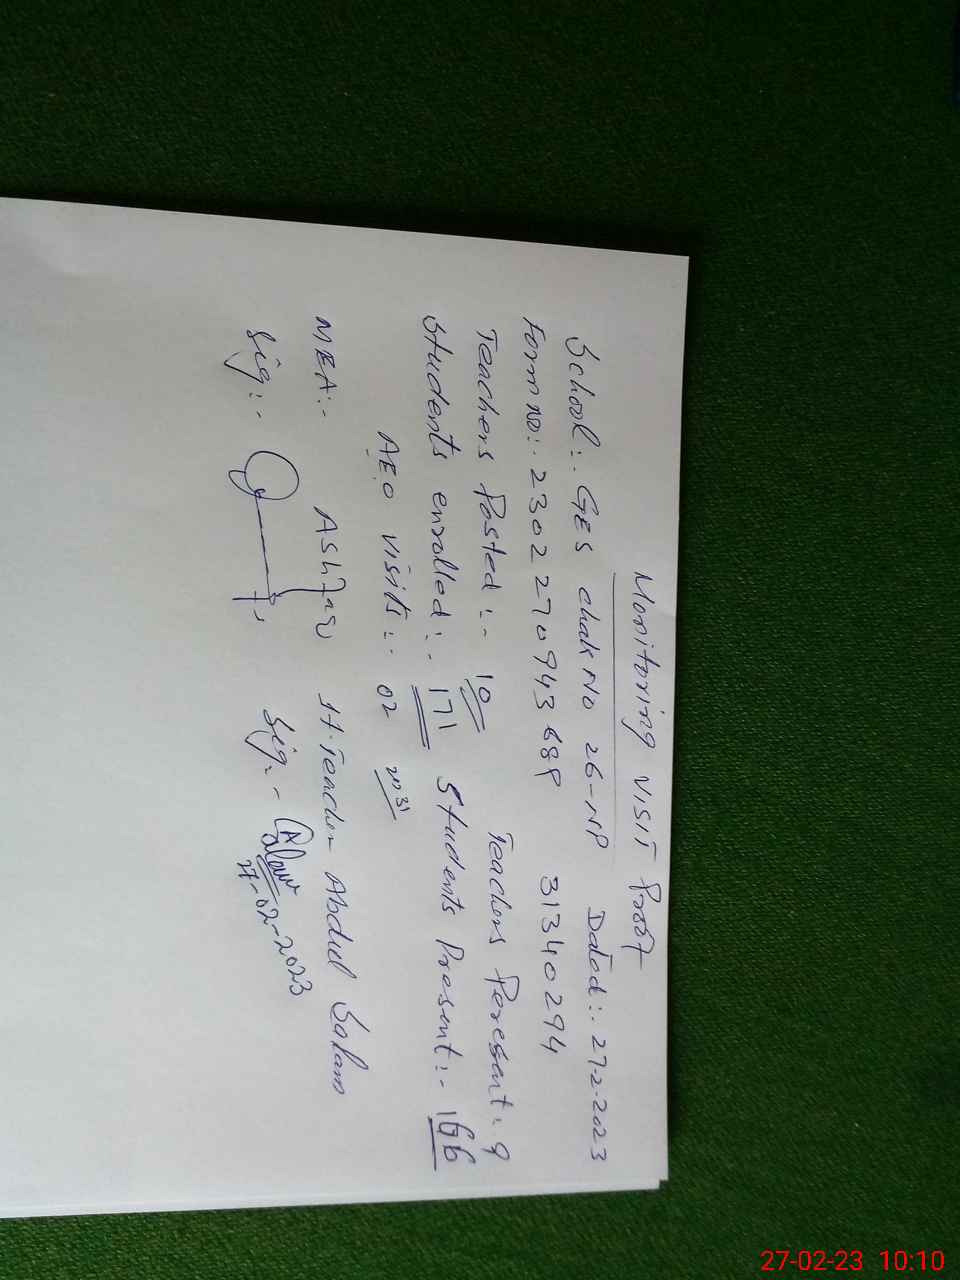 Monitoring visit Proof
School:- GES chak No 26-NP Dated:- 27-2-2023
Form No:- 230227094368P 31340294
Teachers Posted:- 10 Teachers Peresent:- 9
Students enrolled:- 171 Students Present:- 166
AEO visits:- 02
MEA:- Ashfaq H.Teacher Abdul Salam
Sig:- Sig:-
27-02-2023
27-02-23 10:10